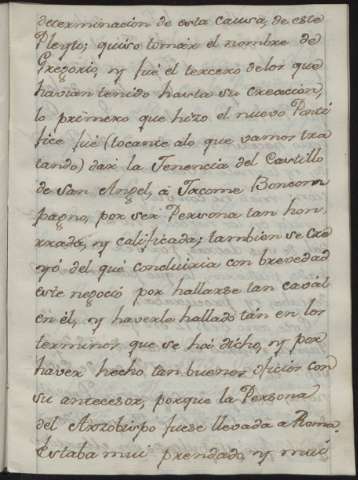 determinacion de esta causa, de este
Pleyto; quiso tomar el nombre de
Gregorio, y fué el tercero delos que
havian tenido hasta su creacion,
lo primero que hizo el nuevo Ponti
fice fué (tocante alo que vamos tra
tando) dar la Tenencia del Castillo
de San Angel, á Jacome Boncom
pagno, por ser Persona tan hon
rrada, y calificada; tambien se cre
yó del que concluiria con brevedad
este negoció por hallarse tan caval
en él, y haverlo hallado tan en los
terminos que se há dicho, y por
haver hecho tan buenos oficios con
su antecesor, porque la Persona
del Arzobispo fuese llevada a Roma.
Estaba mui prendado, y mui